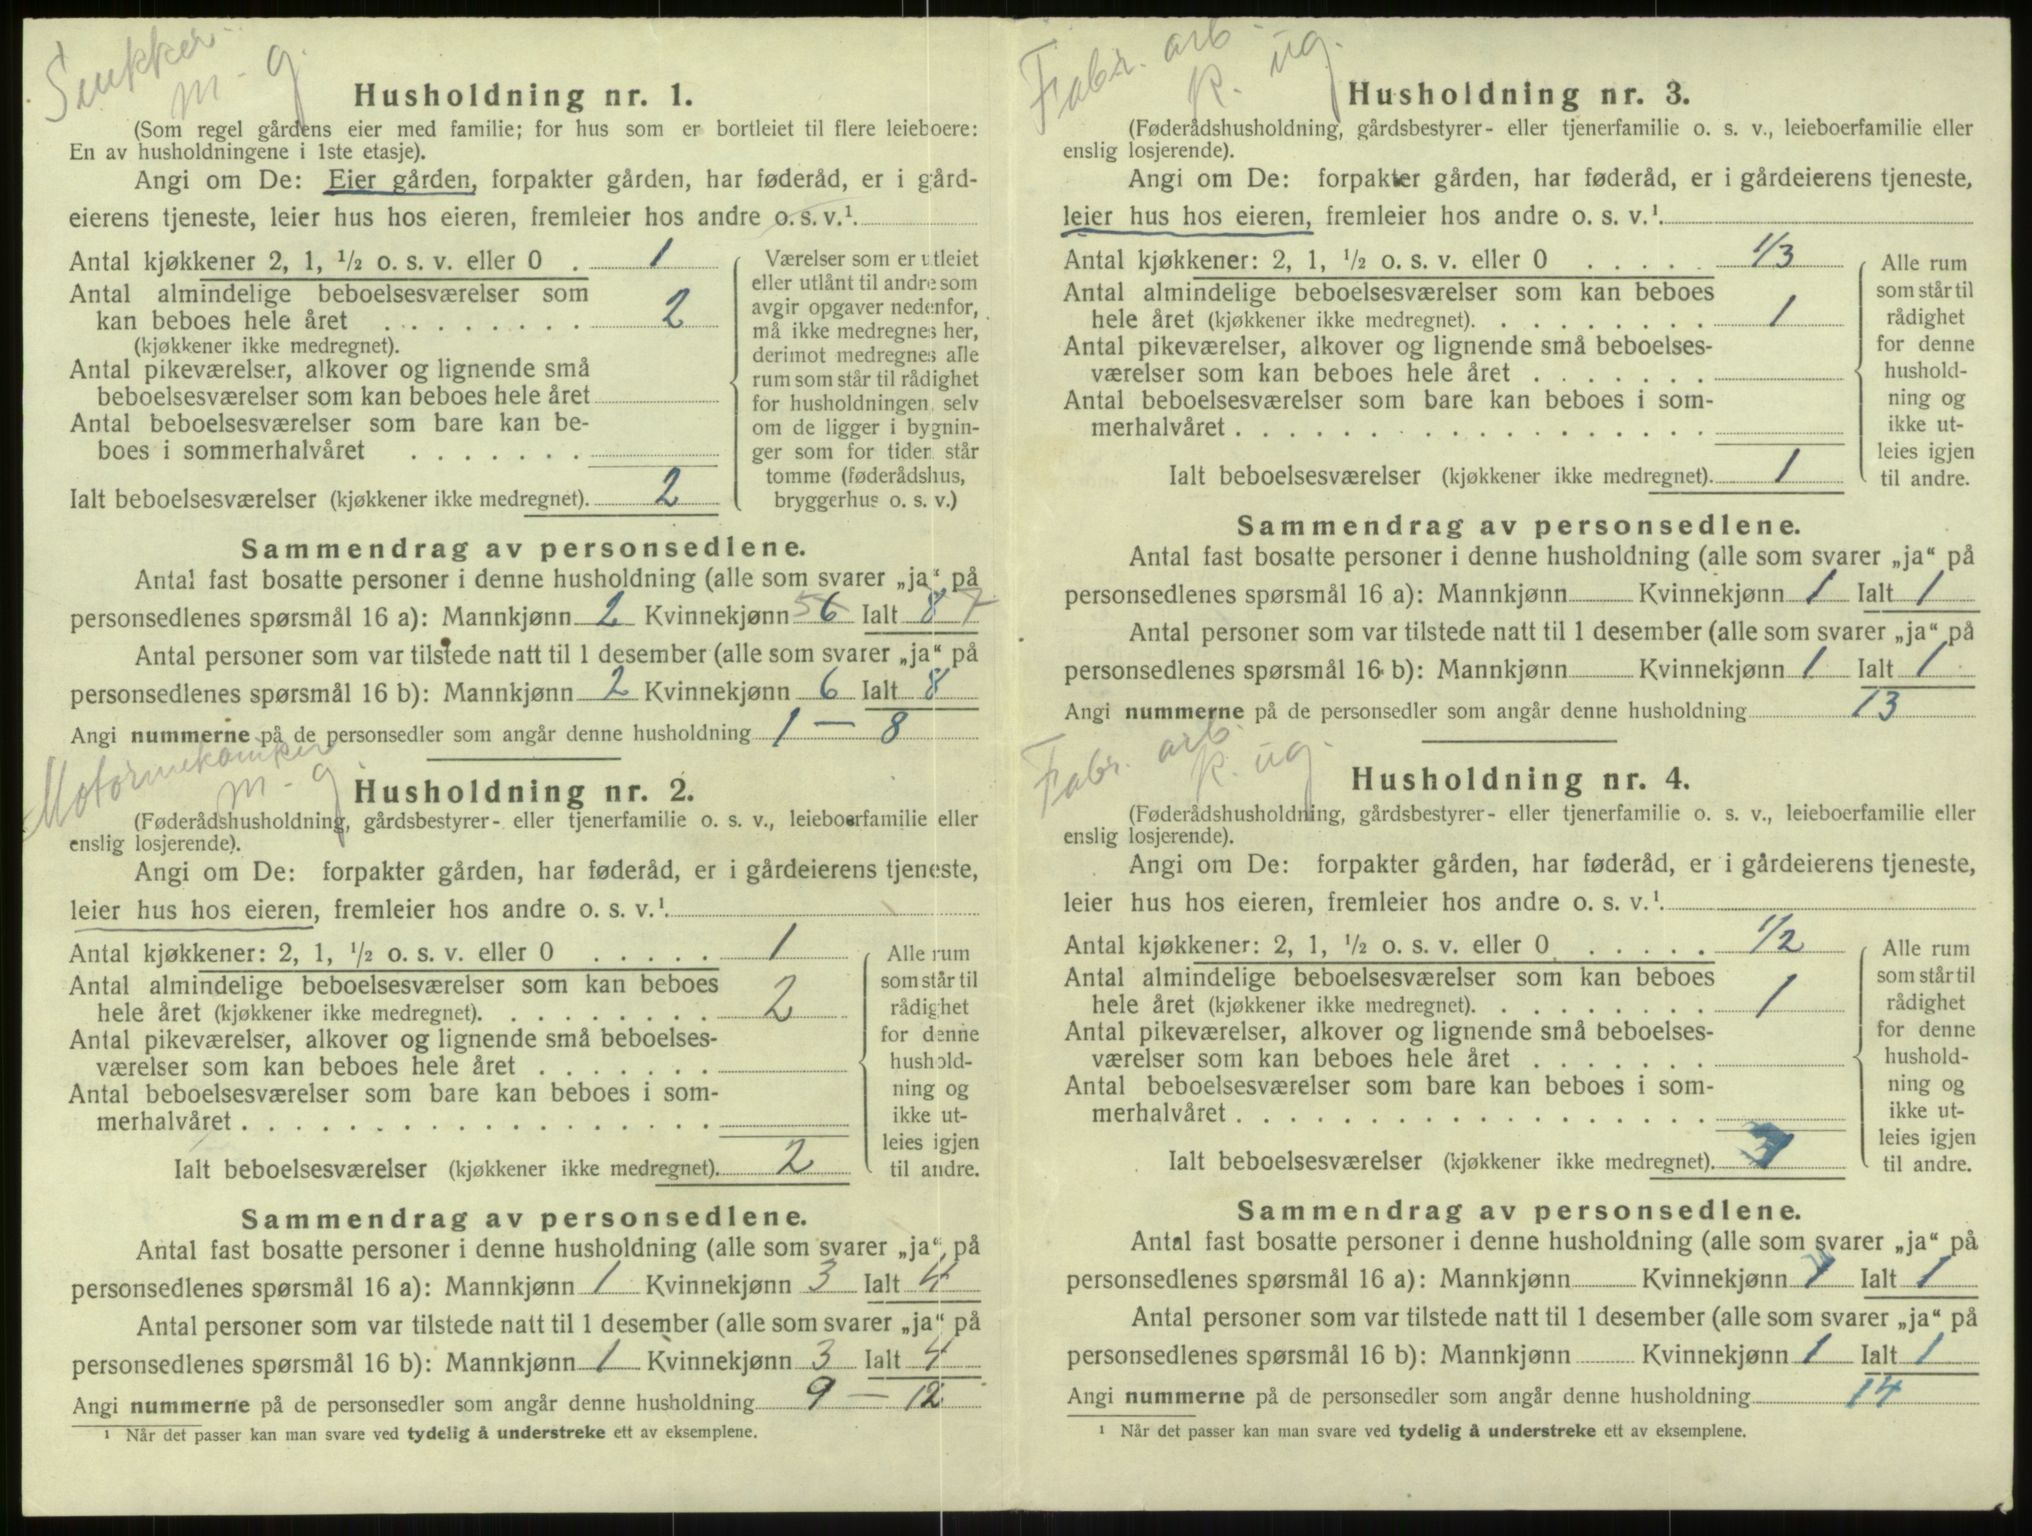 Snekker
m - g.
Husholdning nr. 1.
(Som regel gårdens eier med familie; for hus som er bortleiet til flere leieboere:
En av husholdningene i 1ste etasje).
Angi om De: Eier gården, forpakter gården, har føderåd, er i gård-
eierens tjeneste, leier hus hos eieren, fremleier hos andre o. s. v.¹
Antal kjøkkener 2, 1, ½ o. s. v. eller 0 . 1
Antal almindelige beboelsesværelser som
kan beboes hele året . . . . . . . . 2
(kjøkkener ikke medregnet).
Antal pikeværelser, alkover og lignende små
beboelsesværelser som kan beboes hele året
Antal beboelsesværelser som bare kan be-
boes i sommerhalvåret . . . . . . .
Ialt beboelsesværelser (kjøkkener ikke medregnet). 2
Værelser som er utleiet
eller utlånt til andre som
avgir opgaver nedenfor,
må ikke medregnes her,
derimot medregnes alle
rum som står til rådighet
for husholdningen selv
om de ligger i bygnin-
ger som for tiden står
tomme (føderådshus,
bryggerhus o. s. v.)
Sammendrag av personsedlene.
Antal fast bosatte personer i denne husholdning (alle som svarer „ja“ på
personsedlenes spørsmål 16 a): Mannkjønn 2 Kvinnekjønn 5 6 Ialt 8 7
Antal personer som var tilstede natt til 1 desember (alle som svarer „ja“ på
personsedlenes spørsmål 16 b): Mannkjønn 2 Kvinnekjønn 6 Ialt 8
Angi nummerne på de personsedler som angår denne husholdning 1 — 8
Motormekaniker
m - g.
Husholdning nr. 2.
(Føderådshusholdning, gårdsbestyrer- eller tjenerfamilie o. s. v., leieboerfamilie eller
enslig losjerende).
Angi om De: forpakter gården, har føderåd, er i gårdeierens tjeneste,
leier hus hos eieren, fremleier hos andre o. s. v.¹
Antal kjøkkener: 2, 1, ½ o. s. v. eller 0 . . . . . 1
Antal almindelige beboelsesværelser som kan beboes
hele året (kjøkkener ikke medregnet). . . . . . . . . 2
Antal pikeværelser, alkover og lignende små beboelses-
værelser som kan beboes hele året . . . . . . .
Antal beboelsesværelser som bare kan beboes i som-
merhalvåret . . . . . . . . . . . . . . . . . .
Ialt beboelsesværelser (kjøkkener ikke medregnet). 2
Alle rum
som står til
rådighet
for denne
hushold-
ning og
ikke ut-
leies igjen
til andre.
Sammendrag av personsedlene.
Antal fast bosatte personer i denne husholdning (alle som svarer „ja“ på
personsedlenes spørsmål 16 a): Mannkjønn 1 Kvinnekjønn 3 Ialt 4
Antal personer som var tilstede natt til 1 desember (alle som svarer „ja“ på
personsedlenes spørsmål 16 b): Mannkjønn 1 Kvinnekjønn 3 Ialt 4
Angi nummerne på de personsedler som angår denne husholdning 9 — 12
¹ Når det passer kan man svare ved tydelig å understreke ett av eksemplene.
Fabr. arb.
K. ug.
Husholdning nr. 3.
(Føderådshusholdning, gårdsbestyrer- eller tjenerfamilie o. s. v., leieboerfamilie eller
enslig losjerende).
Angi om De: forpakter gården, har føderåd, er i gårdeierens tjeneste,
leier hus hos eieren, fremleier hos andre o. s. v.¹
Antal kjøkkener: 2, 1, ½ o. s. v. eller 0 . . . . . 1/3
Antal almindelige beboelsesværelser som kan beboes
hele året (kjøkkener ikke medregnet). . . . . . . . . 1
Antal pikeværelser, alkover og lignende små beboelses-
værelser som kan beboes hele året . . . . . . .
Antal beboelsesværelser som bare kan beboes i som-
merhalvåret . . . . . . . . . . . . . . . . . .
Ialt beboelsesværelser (kjøkkener ikke medregnet). 1
Alle rum
som står til
rådighet
for denne
hushold-
ning og
ikke ut-
leies igjen
til andre.
Sammendrag av personsedlene.
Antal fast bosatte personer i denne husholdning (alle som svarer „ja“ på
personsedlenes spørsmål 16 a): Mannkjønn Kvinnekjønn 1 Ialt 1
Antal personer som var tilstede natt til 1 desember (alle som svarer „ja“ på
personsedlenes spørsmål 16 b): Mannkjønn Kvinnekjønn 1 Ialt 1
Angi nummerne på de personsedler som angår denne husholdning 13
Fabr. arb.
K. ug.
Husholdning nr. 4.
(Føderådshusholdning, gårdsbestyrer- eller tjenerfamilie o. s. v., leieboerfamilie eller
enslig losjerende).
Angi om De: forpakter gården, har føderåd, er i gårdeierens tjeneste,
leier hus hos eieren, fremleier hos andre o. s. v.¹
Antal kjøkkener: 2, 1, ½ o. s. v. eller 0 . . . . . 1/2
Antal almindelige beboelsesværelser som kan beboes
hele året (kjøkkener ikke medregnet). . . . . . . . . 1
Antal pikeværelser, alkover og lignende små beboelses-
værelser som kan beboes hele året . . . . . . .
Antal beboelsesværelser som bare kan beboes i som-
merhalvåret . . . . . . . . . . . . . . . . . .
Ialt beboelsesværelser (kjøkkener ikke medregnet).
Alle rum
som står til
rådighet
for denne
hushold-
ning og
ikke ut-
leies igjen
til andre.
Sammendrag av personsedlene.
Antal fast bosatte personer i denne husholdning (alle som svarer „ja“ på
personsedlenes spørsmål 16 a): Mannkjønn Kvinnekjønn 1 Ialt 1
Antal personer som var tilstede natt til 1 desember (alle som svarer „ja“ på
personsedlenes spørsmål 16 b): Mannkjønn Kvinnekjønn 1 Ialt 1
Angi nummerne på de personsedler som angår denne husholdning 14
¹ Når det passer kan man svare ved tydelig å understreke ett av eksemplene.